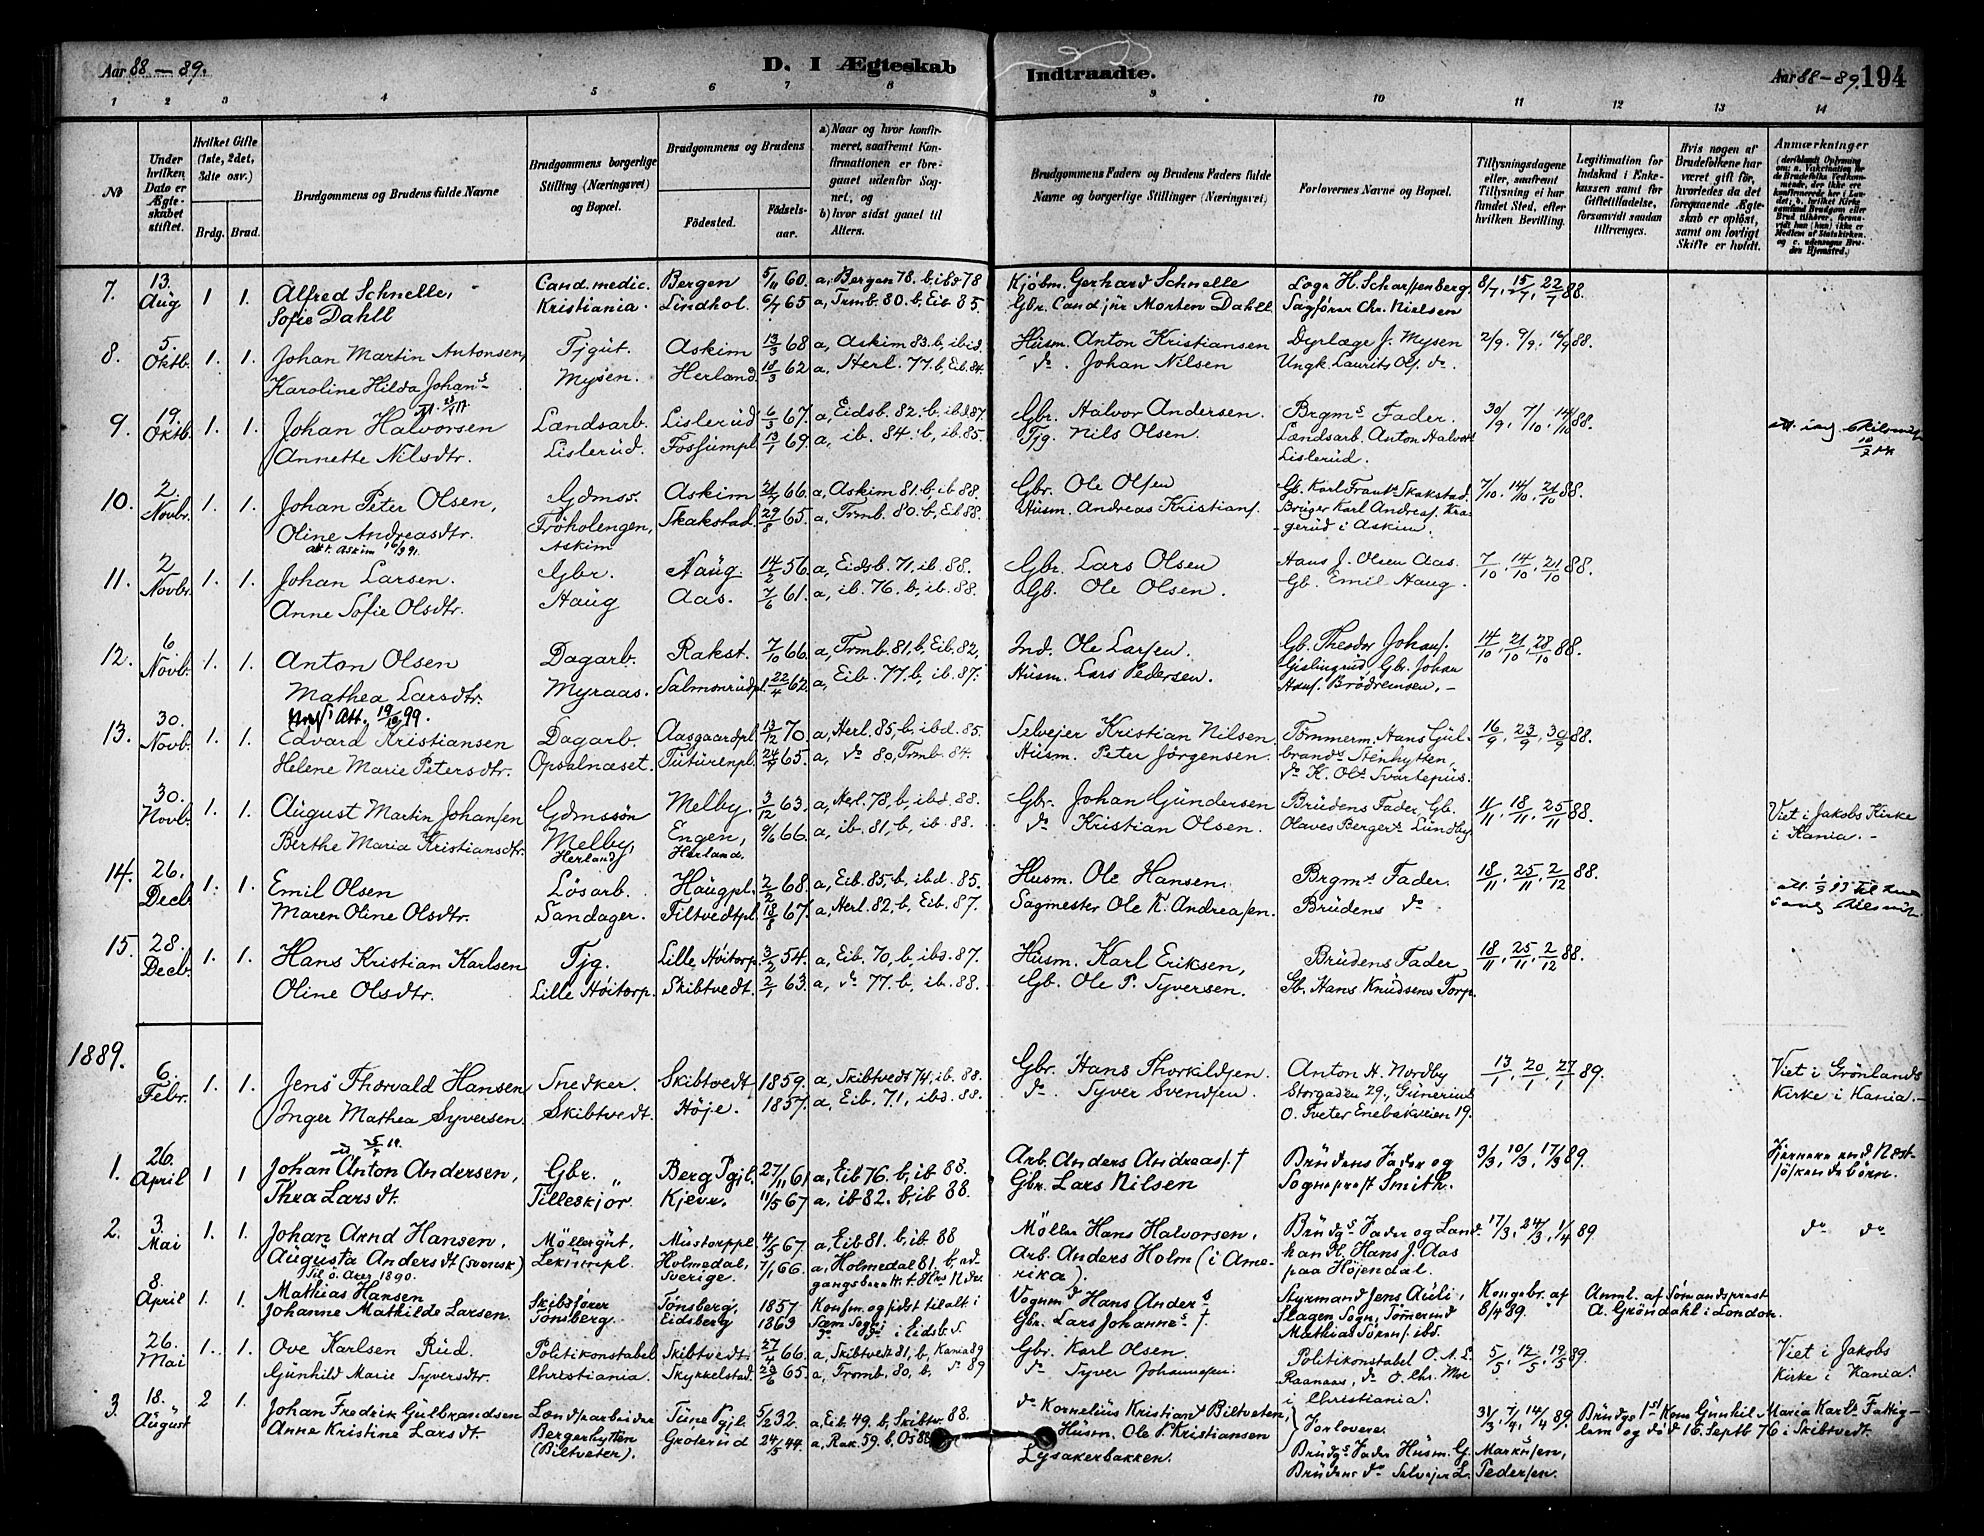 Aar 88 – 89.
D. I Ægteskab
Indtraadte.
Aar 88 – 89.
194
1 2 3 4 5 6 7 8 9 10 11 12 13 14
No
Under hvilken Dato er Ægteskabet stiftet.
Hvilket Gifte (1ste, 2det, 3die osv.)
Brdg. Brud.
Brudgommens og Brudens fulde Navne
Brudgommens borgerlige Stilling (Næringsvei) og Bopæl.
Brudgommens og Brudens
Fødested. Fødselsaar.
a) Naar og hvor konfirmeret, saafremt Konfirmationen er foregaaet udenfor Sognet, og
b) hvor sidst gaaet til Alters.
Brudgommens Faders og Brudens Faders fulde Navne og borgerlige Stillinger (Næringsvei)
Forlovernes Navne og Bopæl.
Tillysningsdagene eller, saafremt Tillysning ei har fundet Sted, efter hvilken Bevilling.
Legitimation for Indskud i Enkekassen samt for Giftetilladelse, forsaavidt saadan tiltrænges.
Hvis nogen af Brudefolkene har været gift før, hvorledes da det foregaaende Ægteskab er opløst, samt om lovligt Skifte er holdt.
Anmærkninger
7. 13. Aug 1 1. Alfred Schnelle, Cand. medic. Bergen 5/11 60. a, Bergen 78. b, ibd 78 Kjöbm. Gerhard Schnelle Loge H. Scharffenberg 8/7, 15/7, 22/7 88.
Sofie Dahll Kristiania. Lindhol. 6/7 65 a, Trmb. 80. b, Eib. 85. Gbr. Cand jur Morten Dahll Sagförer Chr. Nielsen
8. 5. Oktb. 1. 1. Johan Martin Antonsen, Tjgut. Askim 13/3 68 a, Askim 83. b, ibid. Husm. Anton Kristiansen Dyrlæge J. Mysen 2/9. 9/9. 16/9 88.
Karoline Hilda Johans Mysen. Herland 18/3 62 a, Herl. 77. b, Eib. 84. do. Johan Nilsen Ungk. Laurits Ols. do.
9. 19. Oktb. 1. 1. Johan Halvorsen Landsarb. Lislerud 6/3 67. a, Eidsb. 82. b, ibd 87. Gbr. Halvor Andersen. Brgms Fader. 30/9, 7/10, 14/10 88.
Annette Nilsdtr. Lislerud. Fossumpl 13/1 69. a, ib. 84. b, ib. 85. Tjg. Nils Olsen. Landsarb. Anton Halvors
Lislerud.
10. 2. Novbr. 1. 1. Johan Peter Olsen, Gdmss. Askim 66. a, Askim 81. b, ib 88. Gbr. Ole Olsen Gb. Karl Frants Skakstad. 7/10. 14/10. 21/10 88.
Oline Andreasdtr. Tröholengen, Skakstad. 29/8 65. a, Trmb. 80. b, Eib 88. Husm. Andreas Kristians. Bruger Karl Andreas. Kragerud i Askim.
att. t. Askim 16/3 91. Askim
11. 2 Novbr. 1. 1. Johan Larsen. Gbr. Haug. 14/2 56. a, Eidsb. 71, ib. 88. Gbr. Lars Olsen Hans J. Olsen Aas. 7/10, 14/10, 21/10 88.
Anne Sofie Olsdtr. Haug Aas. 7/6 61. a, ib. 76. b, ib. 88. Gb. Ole Olsen. Gb. Emil Haug.
12. 6 Novb. 1. 1. Anton Olsen Dagarb. Rakst. 7/10 66. a, Trmb. 81, b, Eib. 82, Ind. Ole Larsen. Gb. Theodor Johans. 14/10, 21/10, 28/10 88.
Mathea Larsdtr. Myraas. Salmonrudpl. 22/4 62. a, Eib. 77. b, ib. 87. Husm. Lars Pedersen. Gislingrud, Gbr. Johan
Hans. Brödremosen. –
Att. 19/10 99.
13. 30. Novb. 1. 1. Edvard Kristiansen Dagarb. Aasgaardpl. 13/12 70. a, Herl. 85, b, ibd. 85. Selvejer Kristian Nilsen Tömmerm. Hans Gul- 16/9, 23/9, 30/9 88.
Helene Marie Petersdtr. Opsalnæset. Tuturenpl. 65. a, do 80, Trmb. 84. Husm. Peter Jörgensen. brands Stenhytten,
do K. Ols Svartepus.
30. Novb. 1. 1. August Martin Johansen Gdmssön Melby. 3/12 63. a, Herl. 78, b, ibd. 88. Gbr. Johan Gundersen Brudens Fader Gb. 11/11, 18/11, 25/11 88. Viet i Jakobs Kirke
Berthe Maria Kristiansdtr. Melby, Engen, 9/6 66. a, ib. 81, b, ib. 88. do Kristian Olsen. Olaves Bergers Lundby i Kania. –
Herland Herland.
14. 26. Decb. 1. 1. Emil Olsen Lösarb. Haugpl. 2/2 68. a, Eib. 85. b, ibd. 85. Husm. Ole Hansen. Brgms Fader. 18/11, 25/11, 2/12 88.
Maren Oline Olsdtr. Sandager. Tiltvedtpl. 18/8 67. a, Herl. 82, b, Eib. 87. Sagmester Ole K. Andreasen. Brudens do
15. 28. Decb. 1. 1. Hans Kristian Karlsen Tjg. Lille Höitorp. 3/2 54. a, Eib. 70, b, ibd. 87. Husm. Karl Eriksen, Brudens Fader 18/11, 25/11, 2/12 88.
Oline Olsdtr. Lille Höitorp. Skibtvedt. 2/1 63. a, do 77. b, ib. 88. Gb. Ole P. Syversen. Gb. Hans Knudsens Torp.
1889.
6. Febr. 1. 1. Jens Thorvald Hansen Snedker. Skibtvedt 1859. a, Skibtvedt 74, ib. 88. Gbr. Hans Thorkildsen. Anton H. Nordby 13/1, 20/1, 27/1 89. Viet i Grönlands
Inger Mathea Syversen. Skibtvedt. Höje. 1857. a, Eib. 71, ibd. 88. do. Syver Svendsen. Storgaden 29., Gunerius Kirke i Kania. –
O. Tveter Enebakveien 19.
1. 26. April 1 1 Johan Anton Andersen, Gbr. Berg Pgjl. 27/11 61 a, Eib 76. b, ib 88. Arb. Anders Andreas. † Brudens Fader og 3/3, 10/3, 17/3 89. Hjernene ere Næst-
Thea Larsdt. Tilleskjör Kjeve. 11/5 67 a, ib 82. b, ib 88. Gbr. Lars Nilsen Sogneprest Smith. söskendebörn.
2. 3. Mai 1. 1. Johan Arnd Hansen, Möllergut. Mustorppl 4/5 67. a, Eib 81. b, ib 88 Møller Hans Halvorsen, Brudgs Fader og Land- 17/3, 24/3, 1/4 89 do do
Augusta Andersdt (svensk) Lekumpl. Holmedal, 7/1 66. a, Holmedal 81. b, ad- Arb. Anders Holm (i Ame- han H. Hans J. Aas
Til ö. Aug 1890. Sverige. rika). paa Höjendal.
8. April 1. 1. Mathias Hansen Skibsförer Tönsberg. 1857 Konfm. og sidst til alt i Vognm d Hans Anders Styrmand Jens Auli, Kongebr. af Anml. af Sömandsprest
Johanne Mathilde Larsen. Tönsberg. Eidsberg 1863 Sem Sogn do i Eidsb d. Gbr. Lars Johannes †. Slagen Sogn, Tömmermd 8/4 89. A. Gröndahl i London.
Mathias Sörens. ibd.
26. Mai 1. 1. Ove Karlsen Rud. Politikonstabel Skibtvedt. 27/4 66. a, Skibtvedt 81, b, Kania 89 Gbr. Karl Olsen. Politikonstabel O. A. L. 5/5, 12/5, 19/5 89. Viet i Jakobs
Gunhild Marie Syversdtr. Christiania. Skykkelstad. 65. a, Tromb. 80, b, do 89 do Syver Johannesen. Raanaas, do O. Chr. Moe Kirke i Kania.
i Christiania.
3. 18. August 2 1. Johan Fredrik Gulbrandsen Landsarbeider Tune Pgjl. 5/2 32. a, Eib 49. b, Skibtv. 88. do Kornelius Kristians Biltveten, Forlovere. 31/3, 7/4, 14/4 89. Brudgs 1st Kone Gunhil Maria Karls Fattig-
Anne Kristine Larsdt. Bergerhytten Groterud 24/5 44. a, Rak. 59. b, Os 88 Husm. Ole P. Kristiansen lem og död 16. Septb 76 i Skibtvedt.
(Biltveter). Lysakerbakken. Brudgs Fader Husm. G. Markusen,
Brudens do Selvejer L. Pedersen.